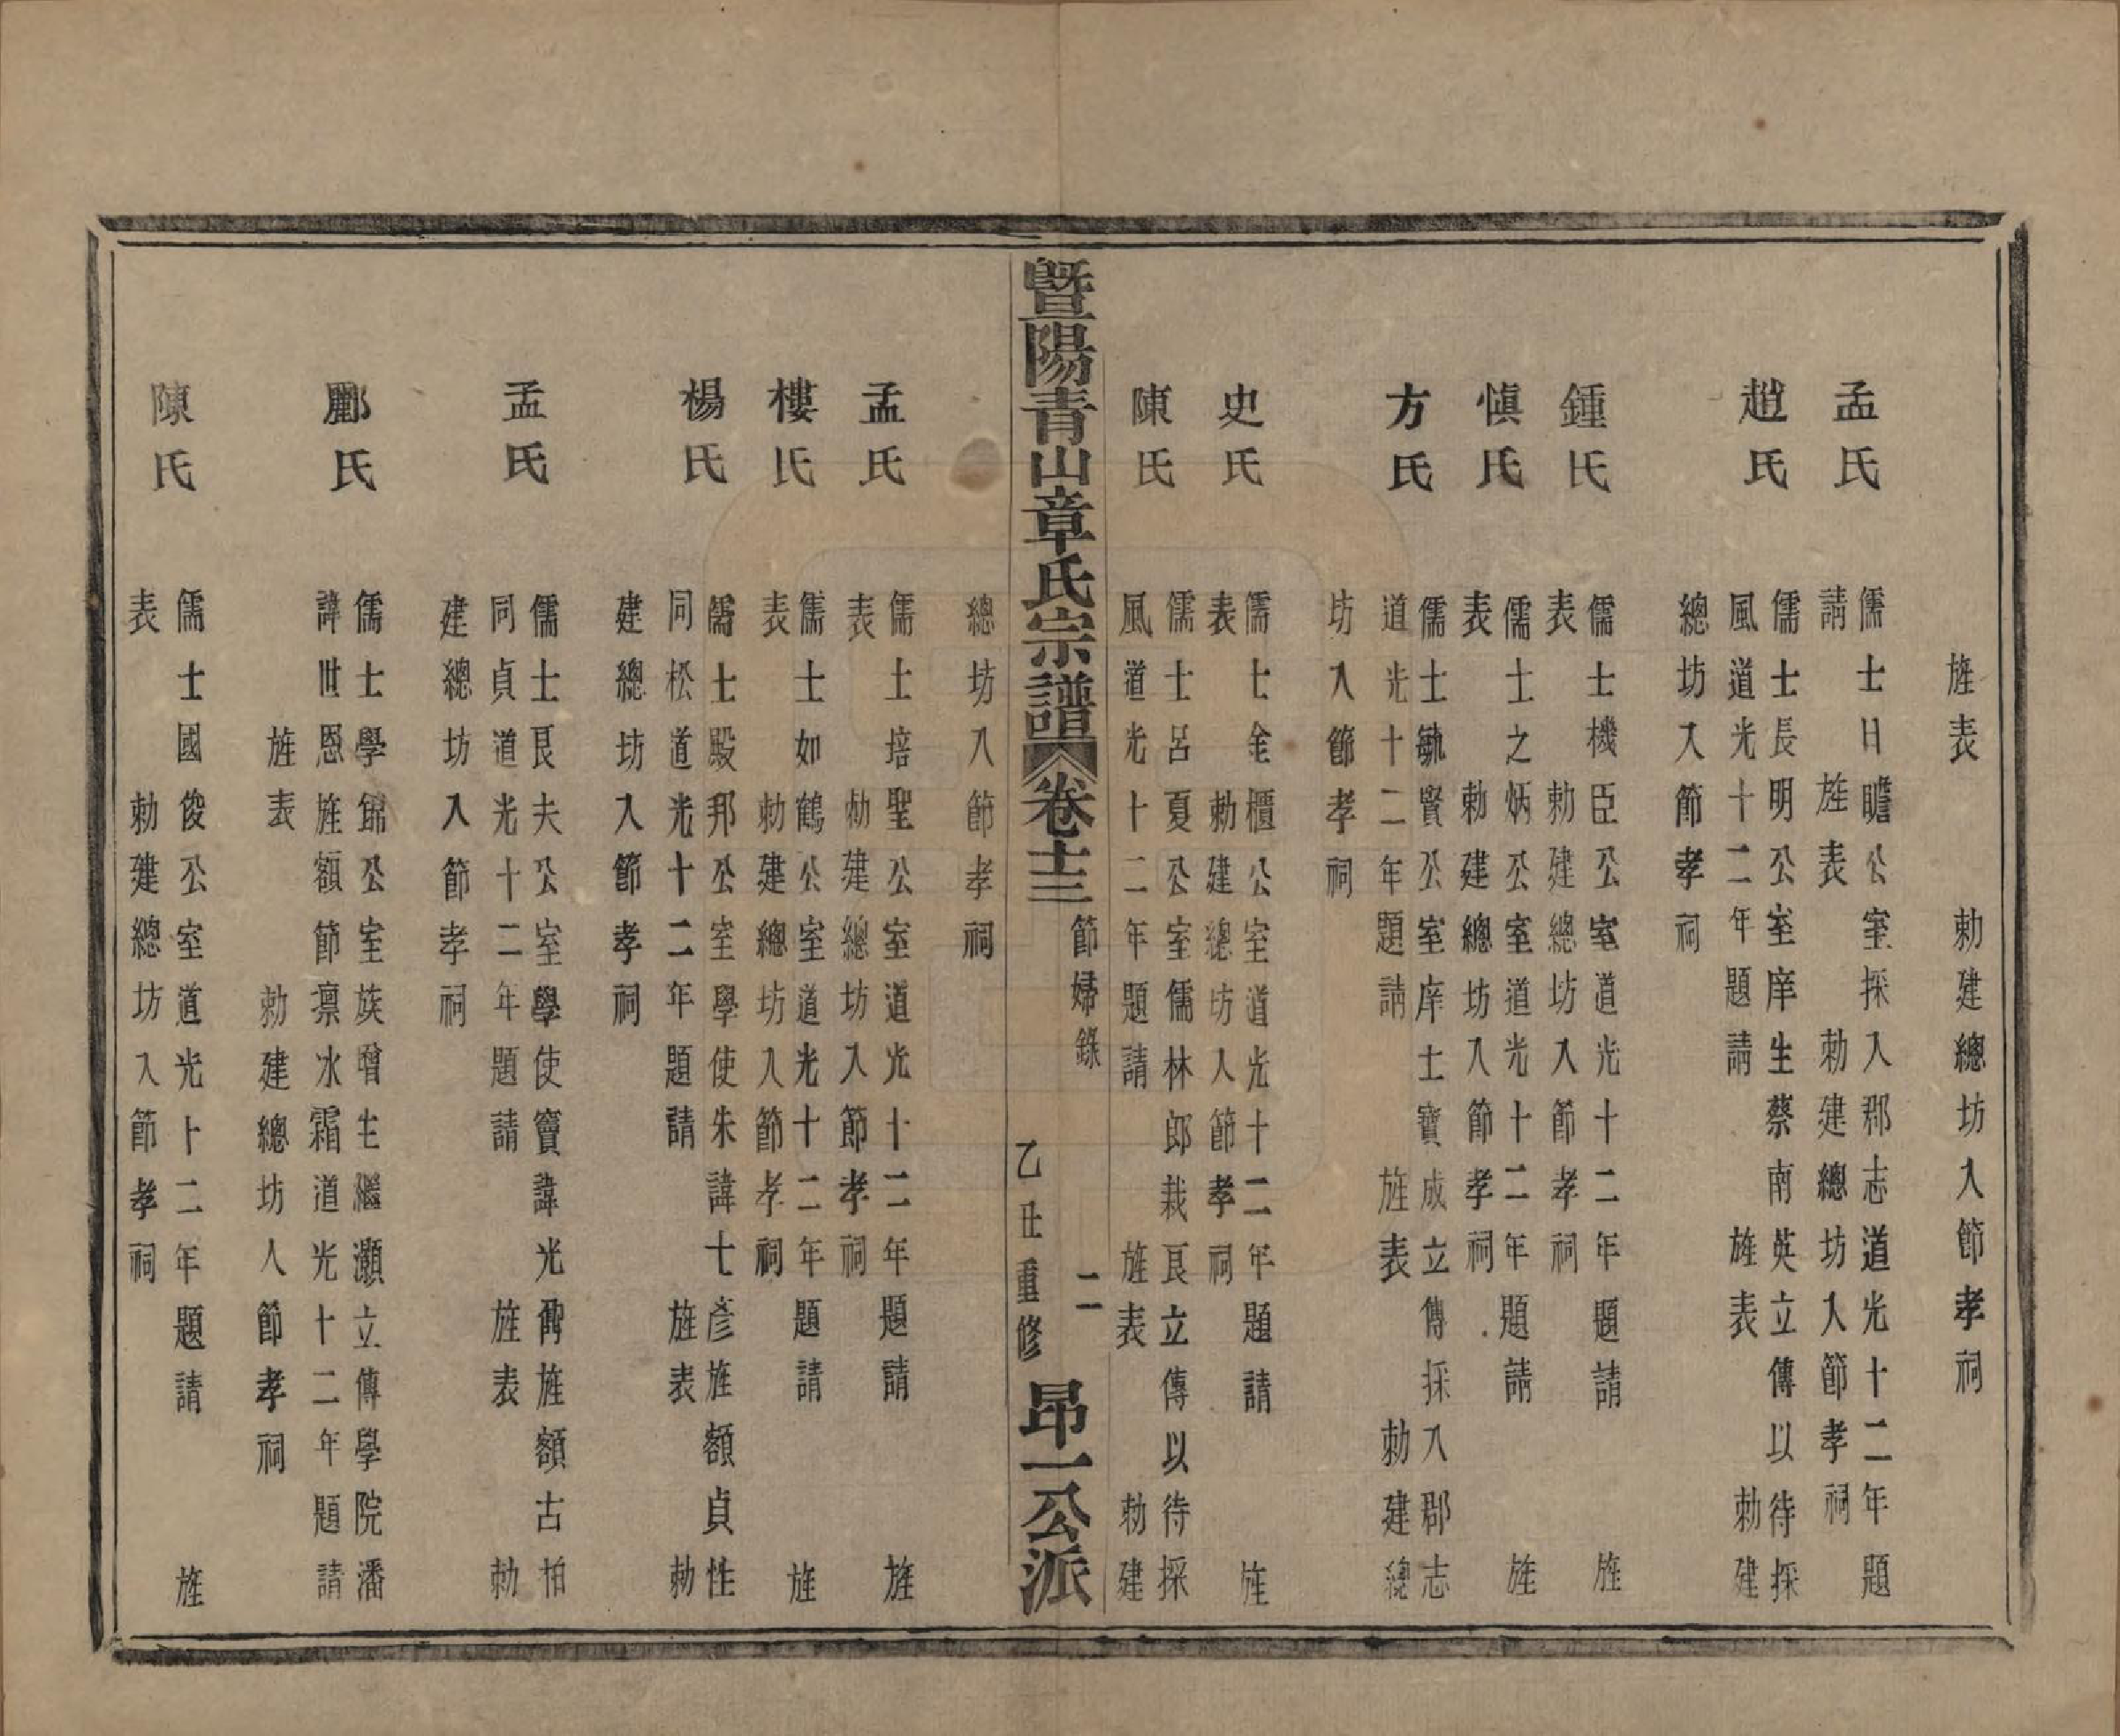 旌表　勅建總坊入節孝祠
孟氏　儒士日瞻公室採入郡志道光十二年題
請　旌表　勅建總坊入節孝祠
趙氏　儒士長明公室庠生蔡南英立傳以待採
風道光十二年題請　旌表　勅建
總坊入節孝祠
鍾氏　儒士機臣公室道光十二年題請　旌
表　勅建總坊入節孝祠
愼氏　儒士之炳公室道光十二年題請　旌
表　勅建總坊入節孝祠
方氏　儒士毓賢公室庠士寶成立傳採入郡志
道光十二年題請　旌表　勅建總
坊入節孝祠
史氏　儒士金櫃公室道光十二年題請　旌
表　勅建總坊入節孝祠
陳氏　儒士呂夏公室儒林郎栽艮立傳以待採
風道光十二年題請　旌表　勅建
暨陽青山章氏宗譜　卷十三　節婦錄　二　乙丑重修　昂一公派
總坊入節孝祠
孟氏　儒士培聖公室道光十二年題請　旌
表　勅建總坊入節孝祠
樓氏　儒士如鶴公室道光十二年題請　旌
表　勅建總坊入節孝祠
楊氏　儒士殿邦公室學使朱諱士彥旌額貞性
同松道光十二年題請　旌表　勅
建總坊入節孝祠
孟氏　儒士艮夫公室學使竇諱光鼐旌額古柏
同貞道光十二年題請　旌表　勅
建總坊入節孝祠
酈氏　儒士學錦公室族增生繼灝立傳學院潘
諱世恩旌額節凛冰霜道光十二年題請
旌表　勅建總坊入節孝祠
陳氏　儒士國俊公室道光十二年題請　旌
表　勅建總坊入節孝祠